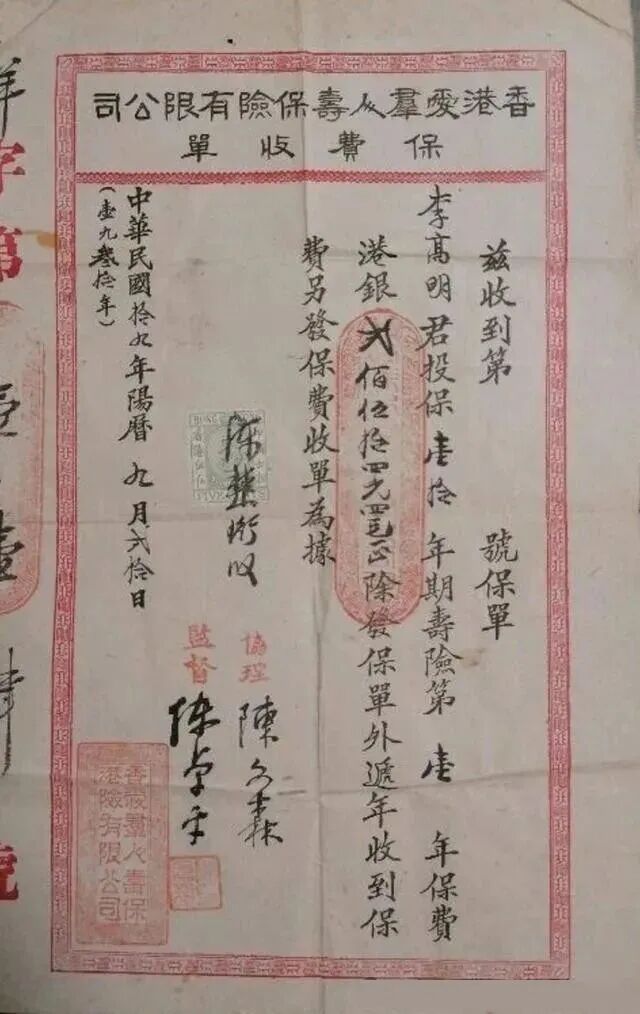 香港愛羣人壽保險有限公司
保費收單
茲收到第 號保單
李高明君投保壹拾年期壽險第壹年保費
港銀弍佰伍拾四元四毛正除發保單外遞年收到保
費另發保費收單為據
協理 陳文森
監督
中華民國拾九年陽曆九月弍拾日
(壹九叁拾年)
香港愛羣人壽保
險有限公司
字第
壹
號